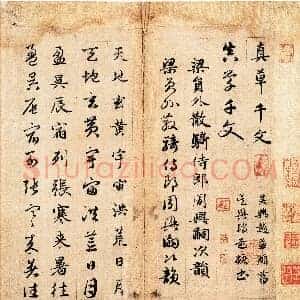 真草千文
真草千文
梁員外散騎侍郎周興嗣次韻
梁員外散騎侍郎周興嗣次韻
天地玄黃宇宙洪荒日月
天地玄黃宇宙洪荒日月
盈昃辰宿列張寒來暑往
盈昃辰宿列張寒來暑往